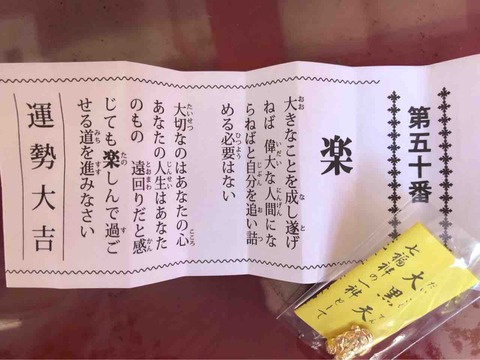 第五十番
楽
大きなことを成し遂げ
ねば 偉大な人間にな
らねばと自分を追い詰
める必要はない
大切なのはあなたの心
あなたの人生はあなた
のもの 遠回りだと感
じても楽しんで過ご
せる道を進みなさい
運勢大吉
大黒天
七福神の一神として